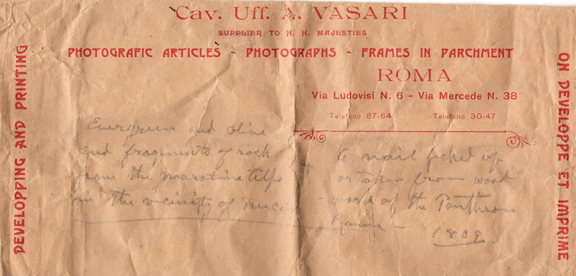 Cav. Uff. A. VASARI
SUPPLIER TO H. H. MAJESTIES
PHOTOGRAFIC ARTICLES - PHOTOGRAPHS - FRAMES IN PARCHMENT
ROMA
Via Ludovisi N. 6 - Via Mercede N. 38
Telefono 87-64 Telefono 30-47
DEVELOPPING AND PRINTING
ON DEVELOPPE ET IMPRIME
Evergreen and olive
and fragments of rock
from the maritime Alps
in the vicinity of
& nail picked up
or taken from wood
work of the Pantheon